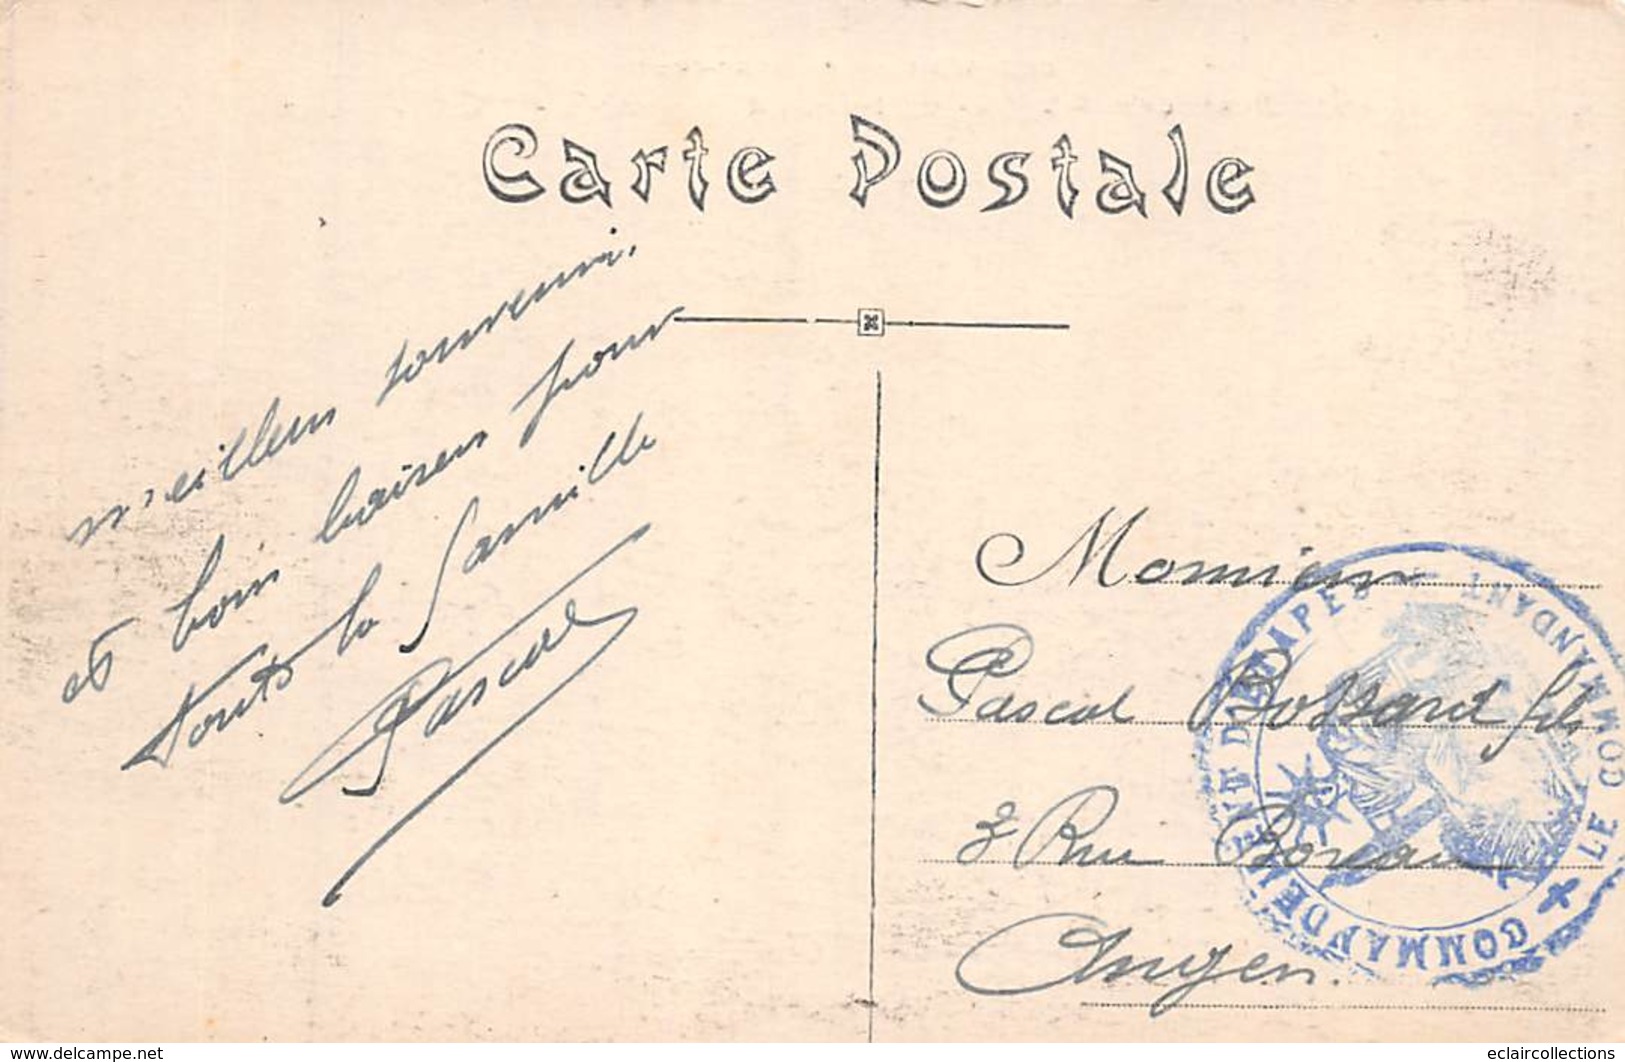 Carte Postale
meilleur souvenir.
et bon baisers pour
toute la famille
Pascal
Monsieur
Pascal Bossard fils
3 Rue Boreau
Angers
COMMANDEMENT D'ETAPES
LE COMMANDANT
www.delcampe.net
eclaircollections